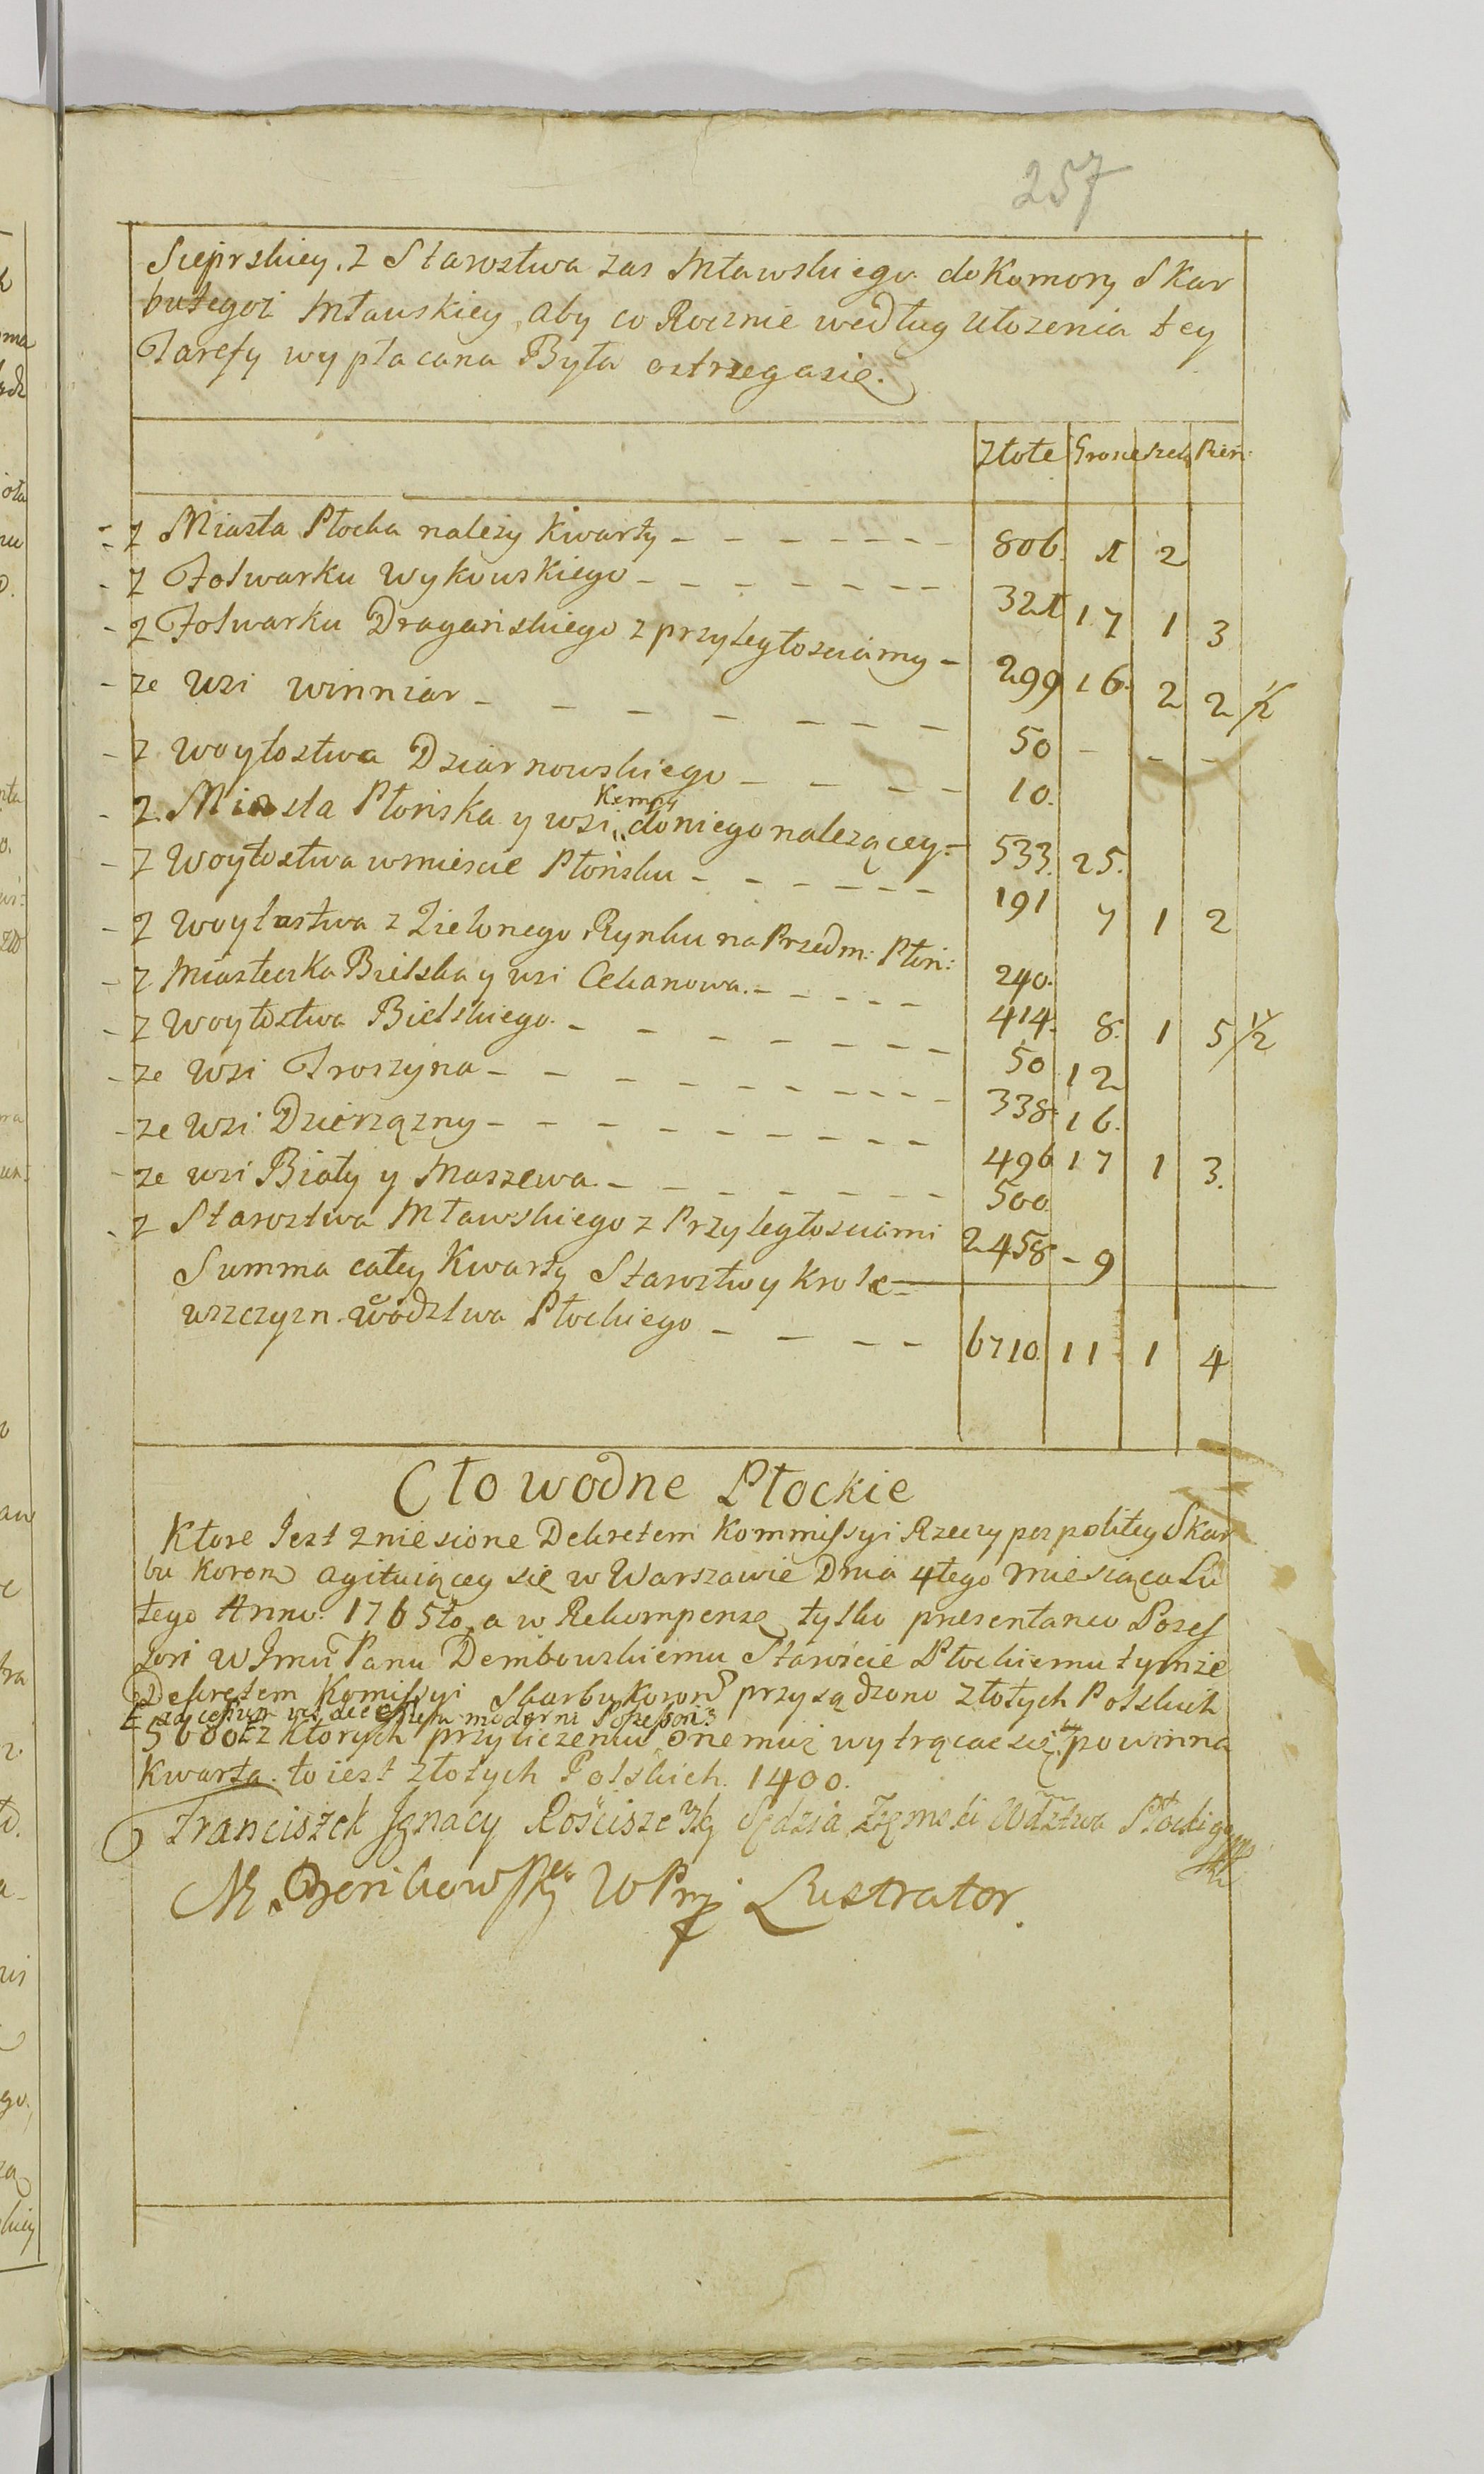 257
Sieprskiey. z Starostwa zas Mławskiego do Komory Skar
bu tegoż Mławskiey, aby co Rocznie według Ułożenia tey
Tarefy wypłacana Była ostrzegasię.
Złote Grosze Szelą Pień:
- z Miasta Płocka należy Kwarty - - - - - - - 806. 1 2
- z Folwarku Wykowskiego - - - - - - - 321 17 1 3
- z Folwarku Dragańskiego z przyległosciamy - 299 16. 2 2 1/2
- ze Wsi Winniar - - - - - - - - 50 - - -
- z Woytostwa Dziarnowskiego - - - - - 10.
Kempy
- z Miasta Płońska y wsi doniego należącey. - 533. 25.
- z Woytostwa wmiescie Płońsku - - - - - - 191 7 1 2
- z Woytostwa z Zielonego Rynku na Przedm: Płon: 240.
- z Miasteczka Bielska y wsi Cekanowa. - - - - - 414. 8. 1 5 1/2
- z Woytostwa Bielskiego. - - - - - - - 50 12
- ze Wsi Troszyna - - - - - - - - - 338. 16.
- ze Wsi Dzierzązny - - - - - - - - - 496 17 1 3.
- ze wsi Biały y Maszewa. - - - - - - - 500.
- z Starostwa Mławskiego z Przyległosciami 2458 - 9
Summa całey Kwarty Starostw y Krole-
wszczyzn. Wodztwa Płockiego - - - - 6710. 11 1 4
Cło wodne Płockie
Ktore Jest zniesione Dekretem Kommissyi Rzeczypospolitey Skar
bu Koron agituiącey się w Warszawie Dnia 4tego Miesiąca Lu
tego Anno. 1765to, a w Rekompensę tylko presentaneo Poses
sori W Jmu Panu Dembowskiemu Staroscie Płockiemu tymże
Dekretem Komissyi Skarbu Koron przysądzono złotych Polskich
moderni Possessoris
5600 z Ktorych przyliczeniu onemuż wytrącac się powinna
Kwarta. to iest złotych Polskich. 1400.
Franciszek Jgnacy Rosciszewsky Sędzia Zięmski Wdztwa Płockiego
Lustrator.